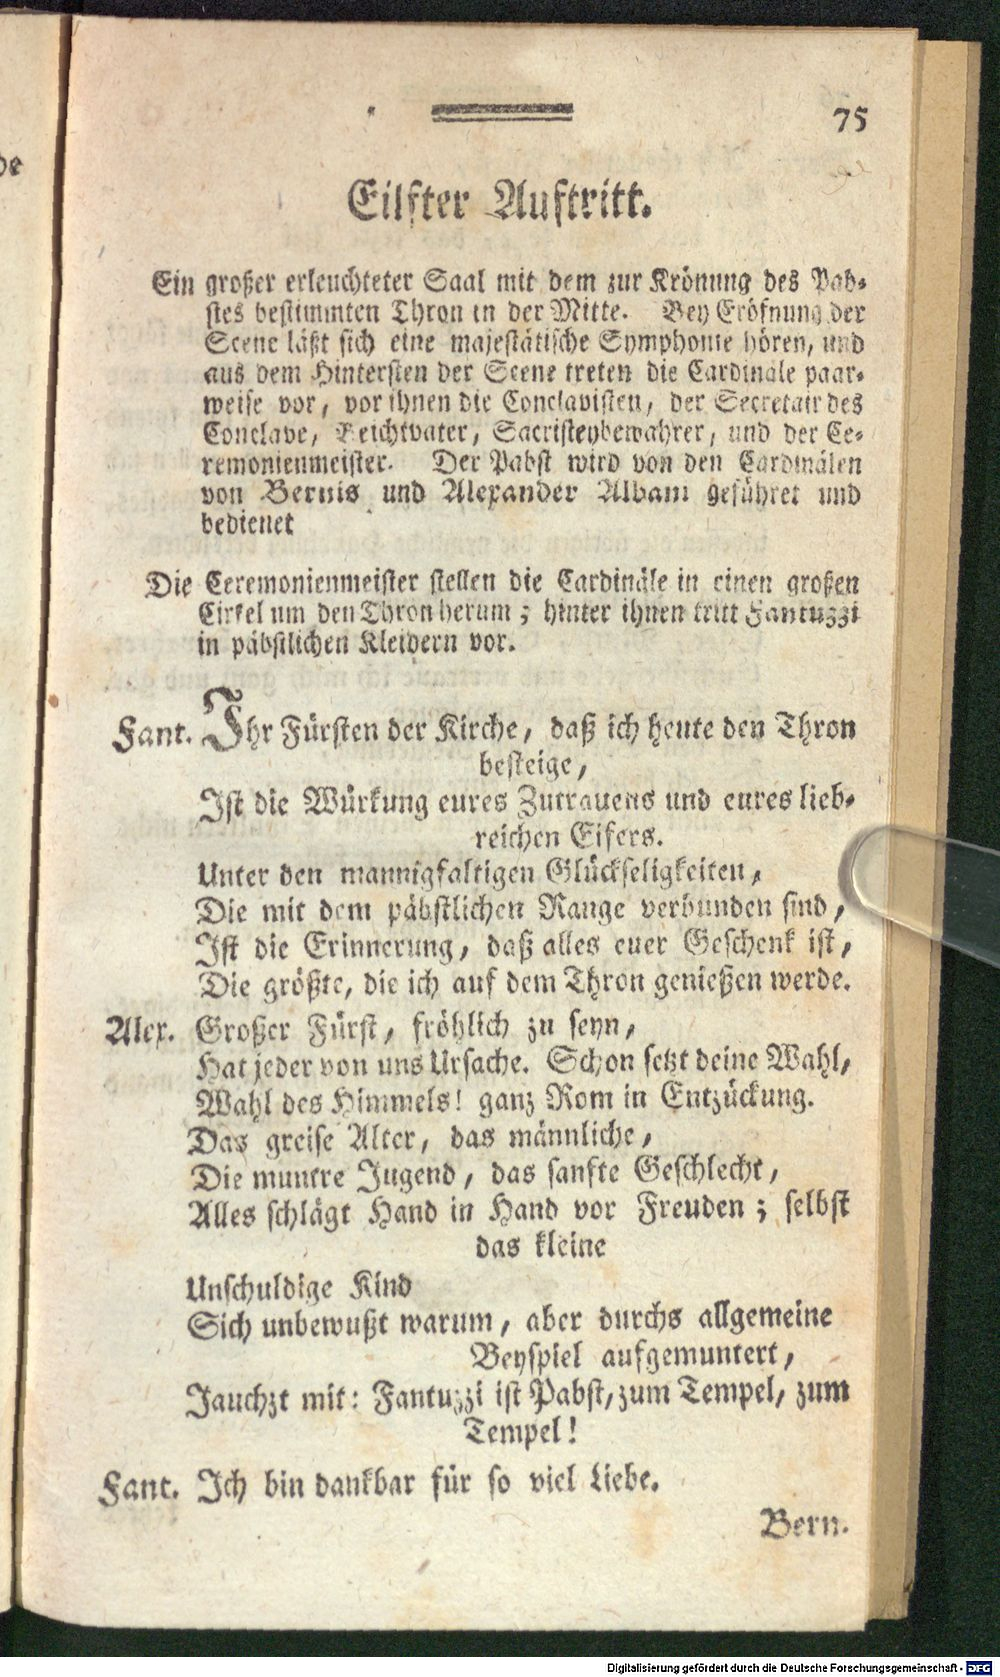 75
Eilfter Auftritt.
Ein großer erleuchteter Saal mit dem zur Krönung des Pab-
stes bestimmten Thron in der Mitte. Bey Eröfnung der
Scene läßt sich eine majestätische Symphonie hören, und
aus dem Hintersten der Scene treten die Cardinäle paar-
weise vor, vor ihnen die Conclavisten, der Secretair des
Conclave, Beichtvater, Sacristeybewahrer, und der Ce-
remonienmeister. Der Pabst wird von den Cardinälen
von Bernis und Alexander Albani geführet und
bedienet
Die Ceremonienmeister stellen die Cardinäle in einen großen
Cirkel um den Thron herum; hinter ihnen tritt Fantuzzi
in päbstlichen Kleidern vor.
Fant. Ihr Fürsten der Kirche, daß ich heute den Thron
besteige,
Ist die Würkung eures Zutrauens und eures lieb-
reichen Eifers.
Unter den mannigfaltigen Glückseligkeiten,
Die mit dem päbstlichen Range verbunden sind,
Ist die Erinnerung, daß alles euer Geschenk ist,
Die größte, die ich auf dem Thron genießen werde.
Alex. Großer Fürst, fröhlich zu seyn,
Hat jeder von uns Ursache. Schon setzt deine Wahl,
Wahl des Himmels! ganz Rom in Entzückung.
Das greise Alter, das männliche,
Die muntre Jugend, das sanfte Geschlecht,
Alles schlägt Hand in Hand vor Freuden; selbst
das kleine
Unschuldige Kind
Sich unbewußt warum, aber durchs allgemeine
Beyspiel aufgemuntert,
Jauchzt mit: Fantuzzi ist Pabst, zum Tempel, zum
Tempel!
Fant. Ich bin dankbar für so viel Liebe.
Bern.
Digitalisierung gefördert durch die Deutsche Forschungsgemeinschaft - DFG